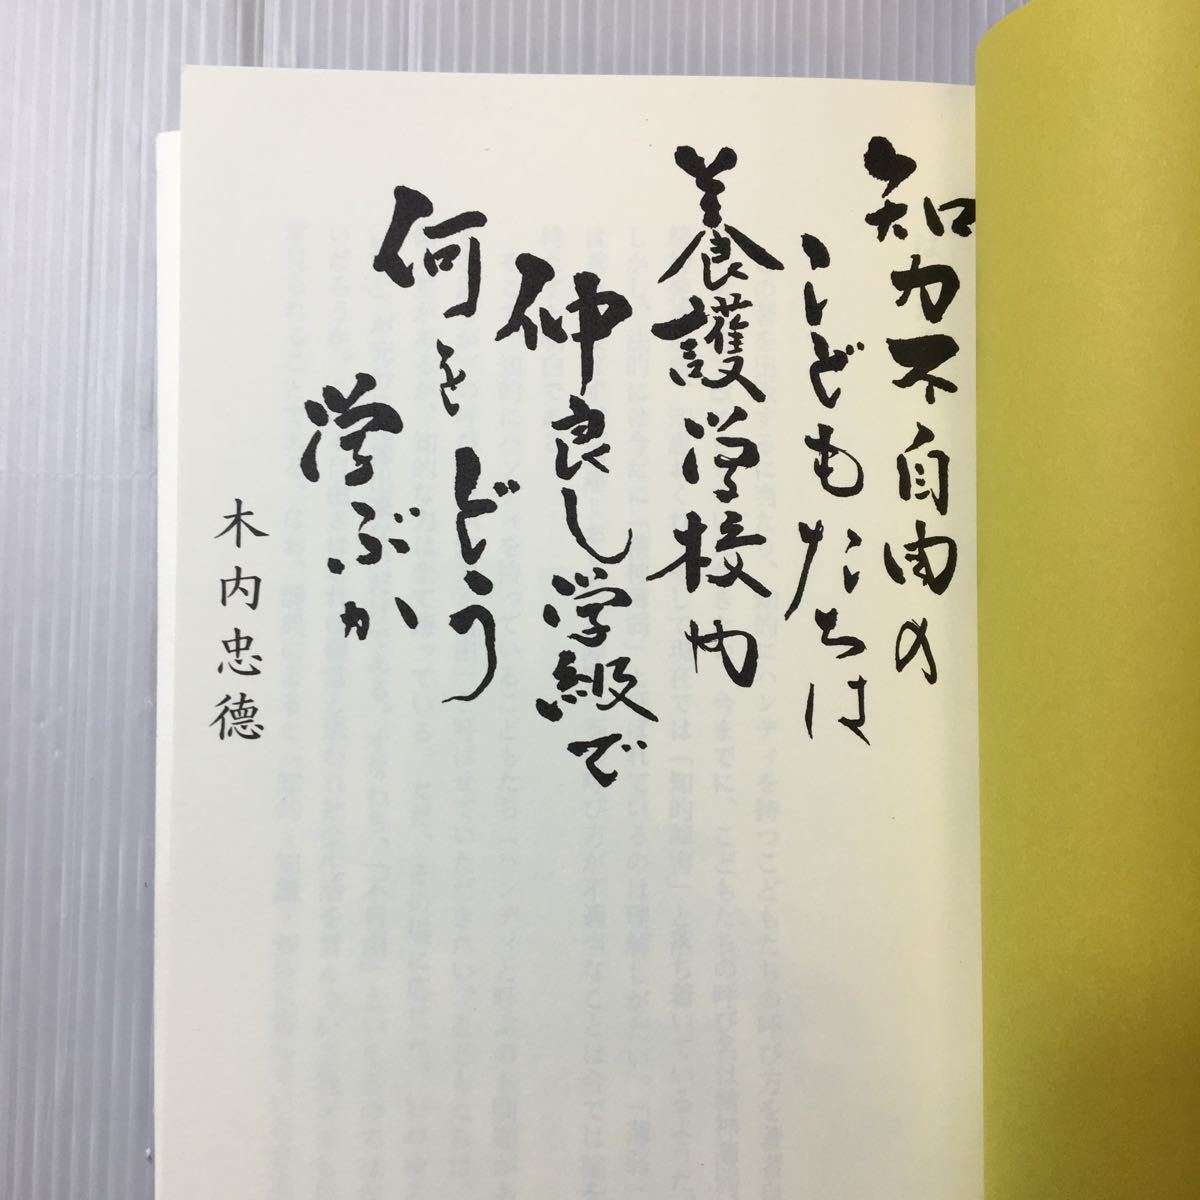 知力不自由の
こどもたちは
養護学校や
仲良し学級で
何をどう
学ぶか
木内忠徳